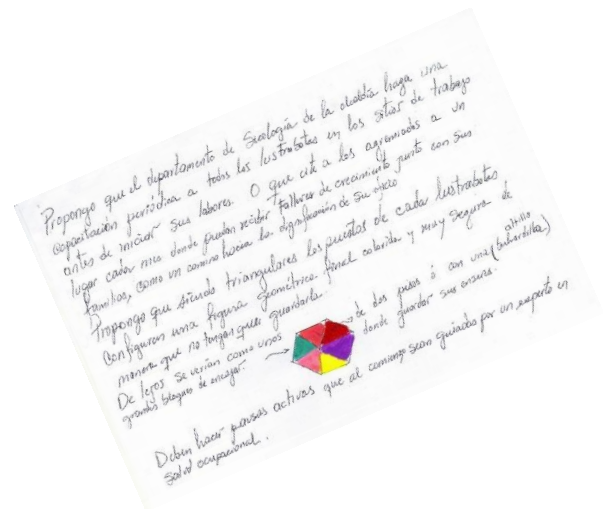 Propongo que el departamento de Sicología de la alcaldía haga una
capacitación periódica a todos los lustrabotas en los sitios de trabajo
antes de iniciar sus labores. O que cite a los agremiados a un
lugar cada mes donde puedan recibir talleres de crecimiento junto con sus
familias, como un camino hacia la dignificación de su oficio
Propongo que siendo triangulares los puestos de cada lustrabotas,
configuren una figura geométrica final colorida y muy segura de
manera que no tengan que guardarla.
De lejos se verían como unos
grandes bloques de encajar.
de dos pisos ó con una altillo
(buhardilla)
donde guardar sus enseres.
Deben hacer pausas activas que al comienzo sean guiadas por un experto en
salud ocupacional.